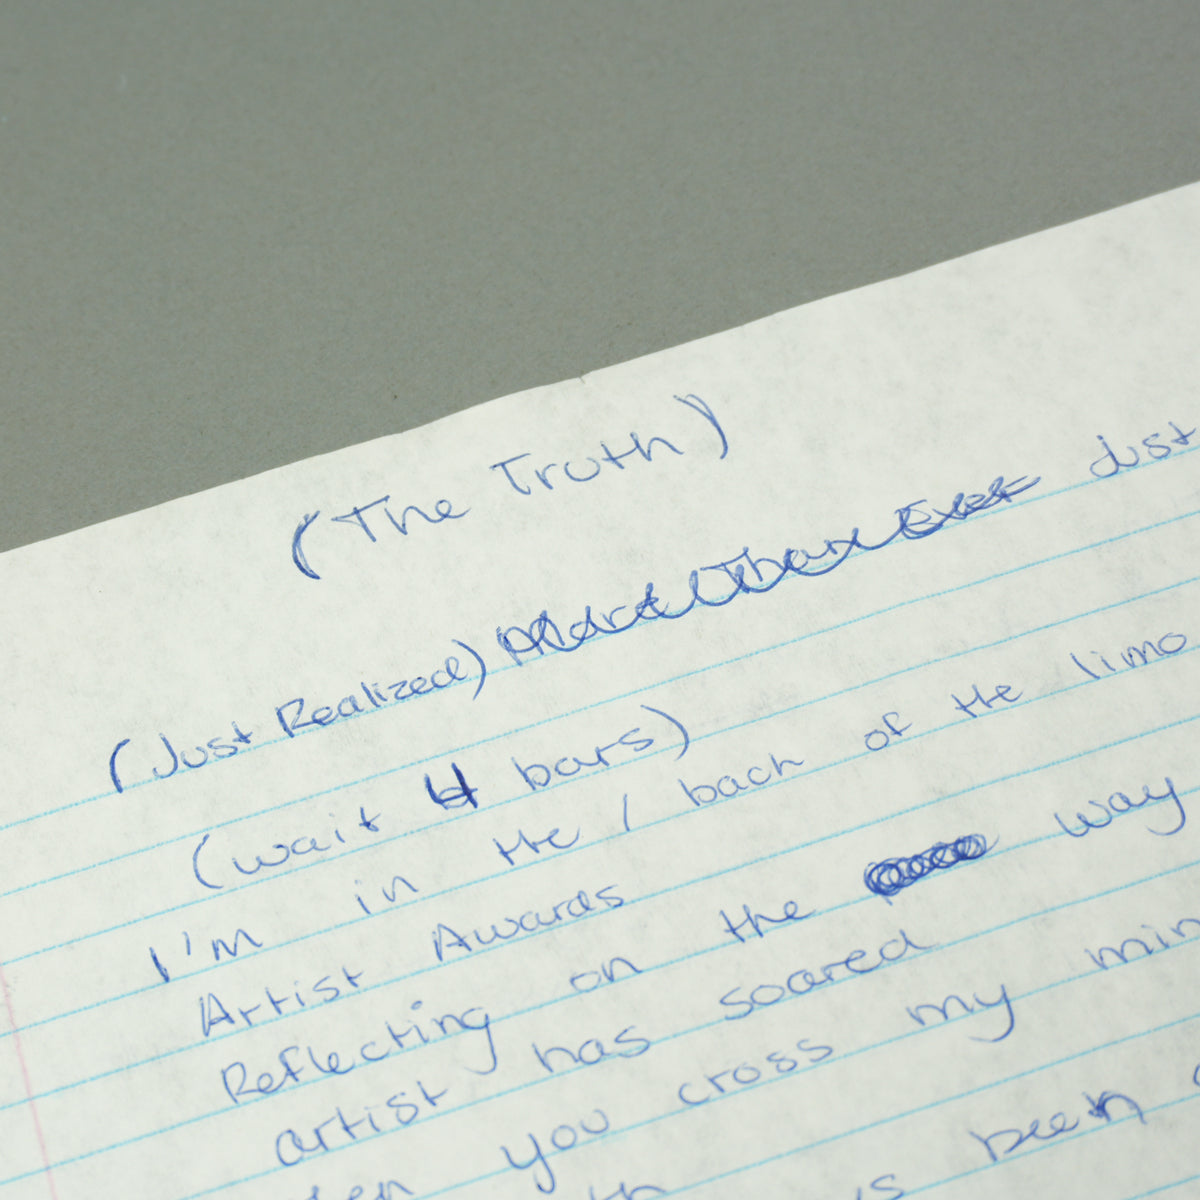 (The Truth)
(Just Realized) More Than Ever Just
(wait 4 bars)
I'm in the / back of the limo
Artist Awards
Reflecting on the way
artist has soared
you cross my
been